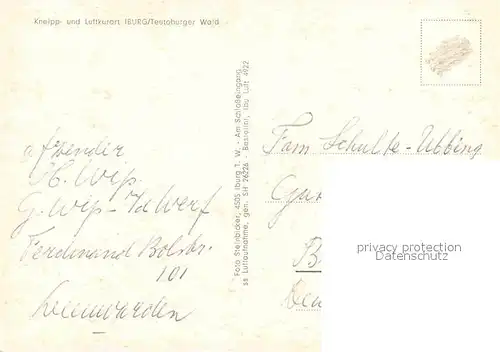 Kneipp- und Luftkurort IBURG/Teutoburger Wald
afzender
H. Wip
G. Wip - Id Werf
Ferdinand Bolstr.
101
Leeuwarden
Foto Steinbicker, 4505 Iburg T. W. - Am Schloßeingang
ss Luftaufnahme, gen. SH 26226 - Bestellnr. Ibu Luft 4922
Fam Schulte-Ubbing
privacy protection
Datenschutz